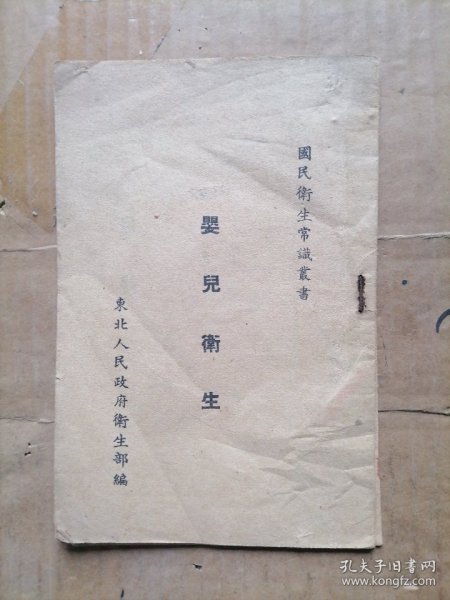 國民衛生常識叢書
嬰兒衛生
東北人民政府衛生部編
孔夫子旧书网
www.kongfz.com